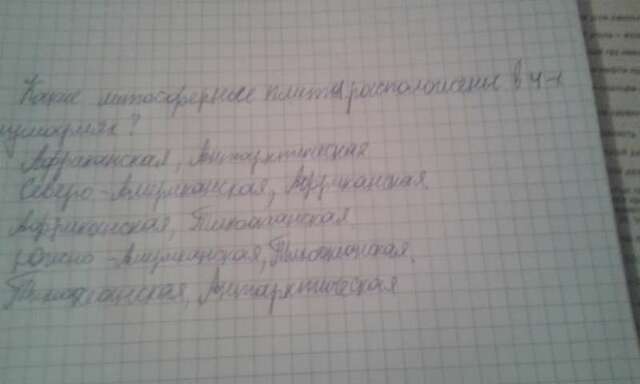 Какие литосферные плиты расположены в 4-х
полушариях?
Африканская, Антарктическая
Северо-Американская, Африканская.
Африканская, Тихоокеанская
южно-Американская, Тихоокеанская.
Тихоокеанская, Антарктическая